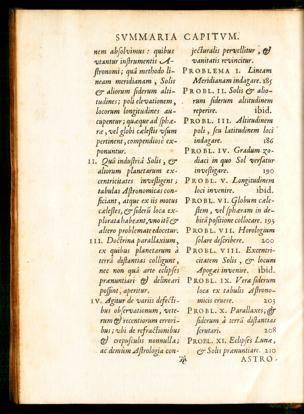 SVMMARIA CAPITVM.
nem absoluimus: quibus
vtantur instrumentis A-
stronomi; quâ methodo li-
neam meridianam, Solis
& aliorum siderum alti-
tudines; poli eleuationem,
locorum longitudines au-
cupentur; quæque ad sphæ-
ræ, vel globi cælestis vsum
pertinent, compendiosè ex-
ponuntur.
II. Quâ industriâ Solis, &
aliorum planetarum ex-
centricitates inuestigent;
tabulas Astronomicas con-
sciant, atque ex iis motus
cælestes, & siderũ loca ex-
plorata habeant, vno ictu &
altero problemate edocetur.
III. Doctrina parallaxium,
ex quibus planetarum à
terrâ distantias colligunt,
nec non quâ arte eclipses
prænuntiari & delineari
possint, aperitur.
IV. Agitur de variis defecti-
bus obseruationum, vete-
rum & recentiorum errori-
bus; vbi de refractionibus
& crepusculis nonnulla;
ac demùm Astrologia con-
jecturalis peruellitur, &
vanitatis reuincitur.
PROBLEMA I. Lineam
Meridianam indagare. 185
PROBL. II. Solis & alio-
rum siderum altitudinem
reperire. ibid.
PROBL. III. Altitudinem
poli, seu Latitudinem loci
indagare. 186
PROBL. IV. Gradum zo-
diaci in quo Sol versatur
inuestigare. 190
PROBL. V. Longitudinem
loci inuenire. ibid.
PROBL. VI. Globum cæle-
stem, vel sphæram in de-
bitâ positione collocare. 195
PROBL. VII. Horologium
solare describere. 200
PROBL. VIII. Excentri-
citatem Solis, & locum
Apogæi inuenire. ibid.
PROBL. IX. Vera siderum
loca ex tabulis Astrono-
micis eruere. 203
PROBL. X. Parallaxes, &
siderum à terrâ distantias
scrutari. 208
PROBL. XI. Eclipses Lunæ,
& Solis prænuntiare. 210
ASTRO-